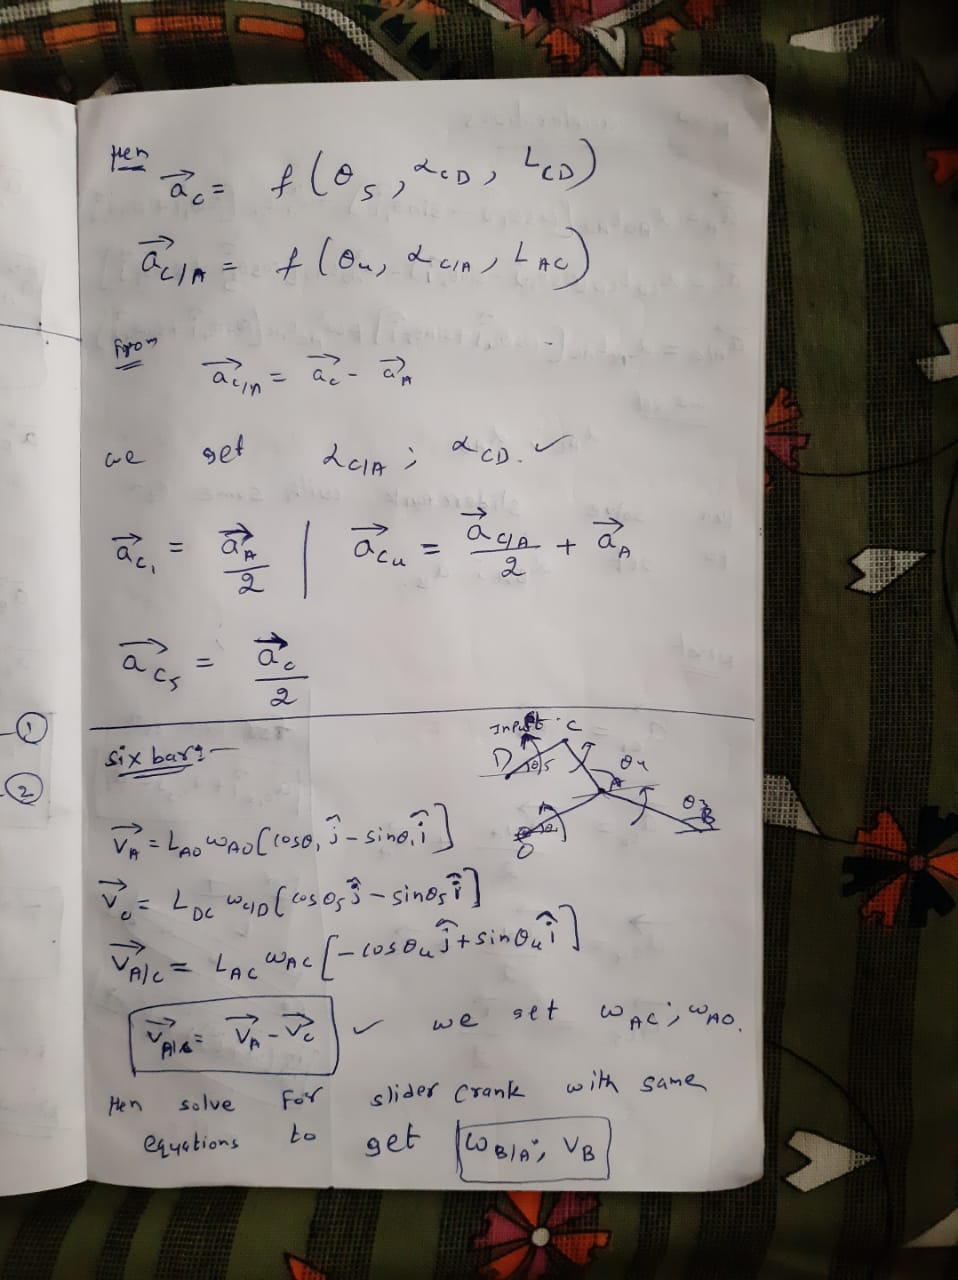 then
a⃗c = f(θ5, αCD, LCD)
a⃗C/A = f(θ4, αC/A, LAC)
From
a⃗C/A = a⃗c - a⃗A
we get αC/A ; αCD. ✓
a⃗c1 = a⃗A/2 | a⃗c4 = a⃗C/A/2 + a⃗A
a⃗c5 = a⃗c/2
①
②
six bar :-
Input C
D θ5 θ4
A
θ3 B
θ1
O
V⃗A = LAO ωAO [cosθ1 ĵ - sinθ1 î]
V⃗c = LDC ωC/D [cosθ5 ĵ - sinθ5 î]
V⃗A/C = LAC ωAC [-cosθ4 ĵ + sinθ4 î]
V⃗A/C = V⃗A - V⃗C ✓ we get ωAC ; ωAO.
then solve For slider crank with same
equations to get ωB/A ; VB